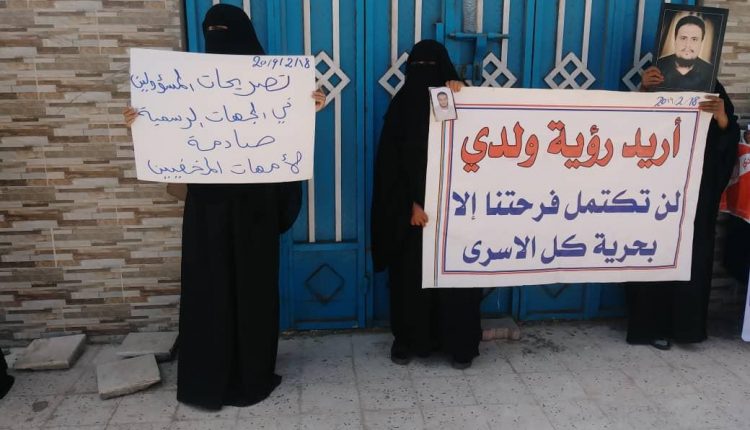 ٢٠١٩/٢/١٨
تصريحات المسؤولين
في الجهات الرسمية
صادمة
لأمهات المخفيين
٢٠١٩-٢-١٨
أريد رؤية ولدي
لن تكتمل فرحتنا إلا
بحرية كل الاسرى